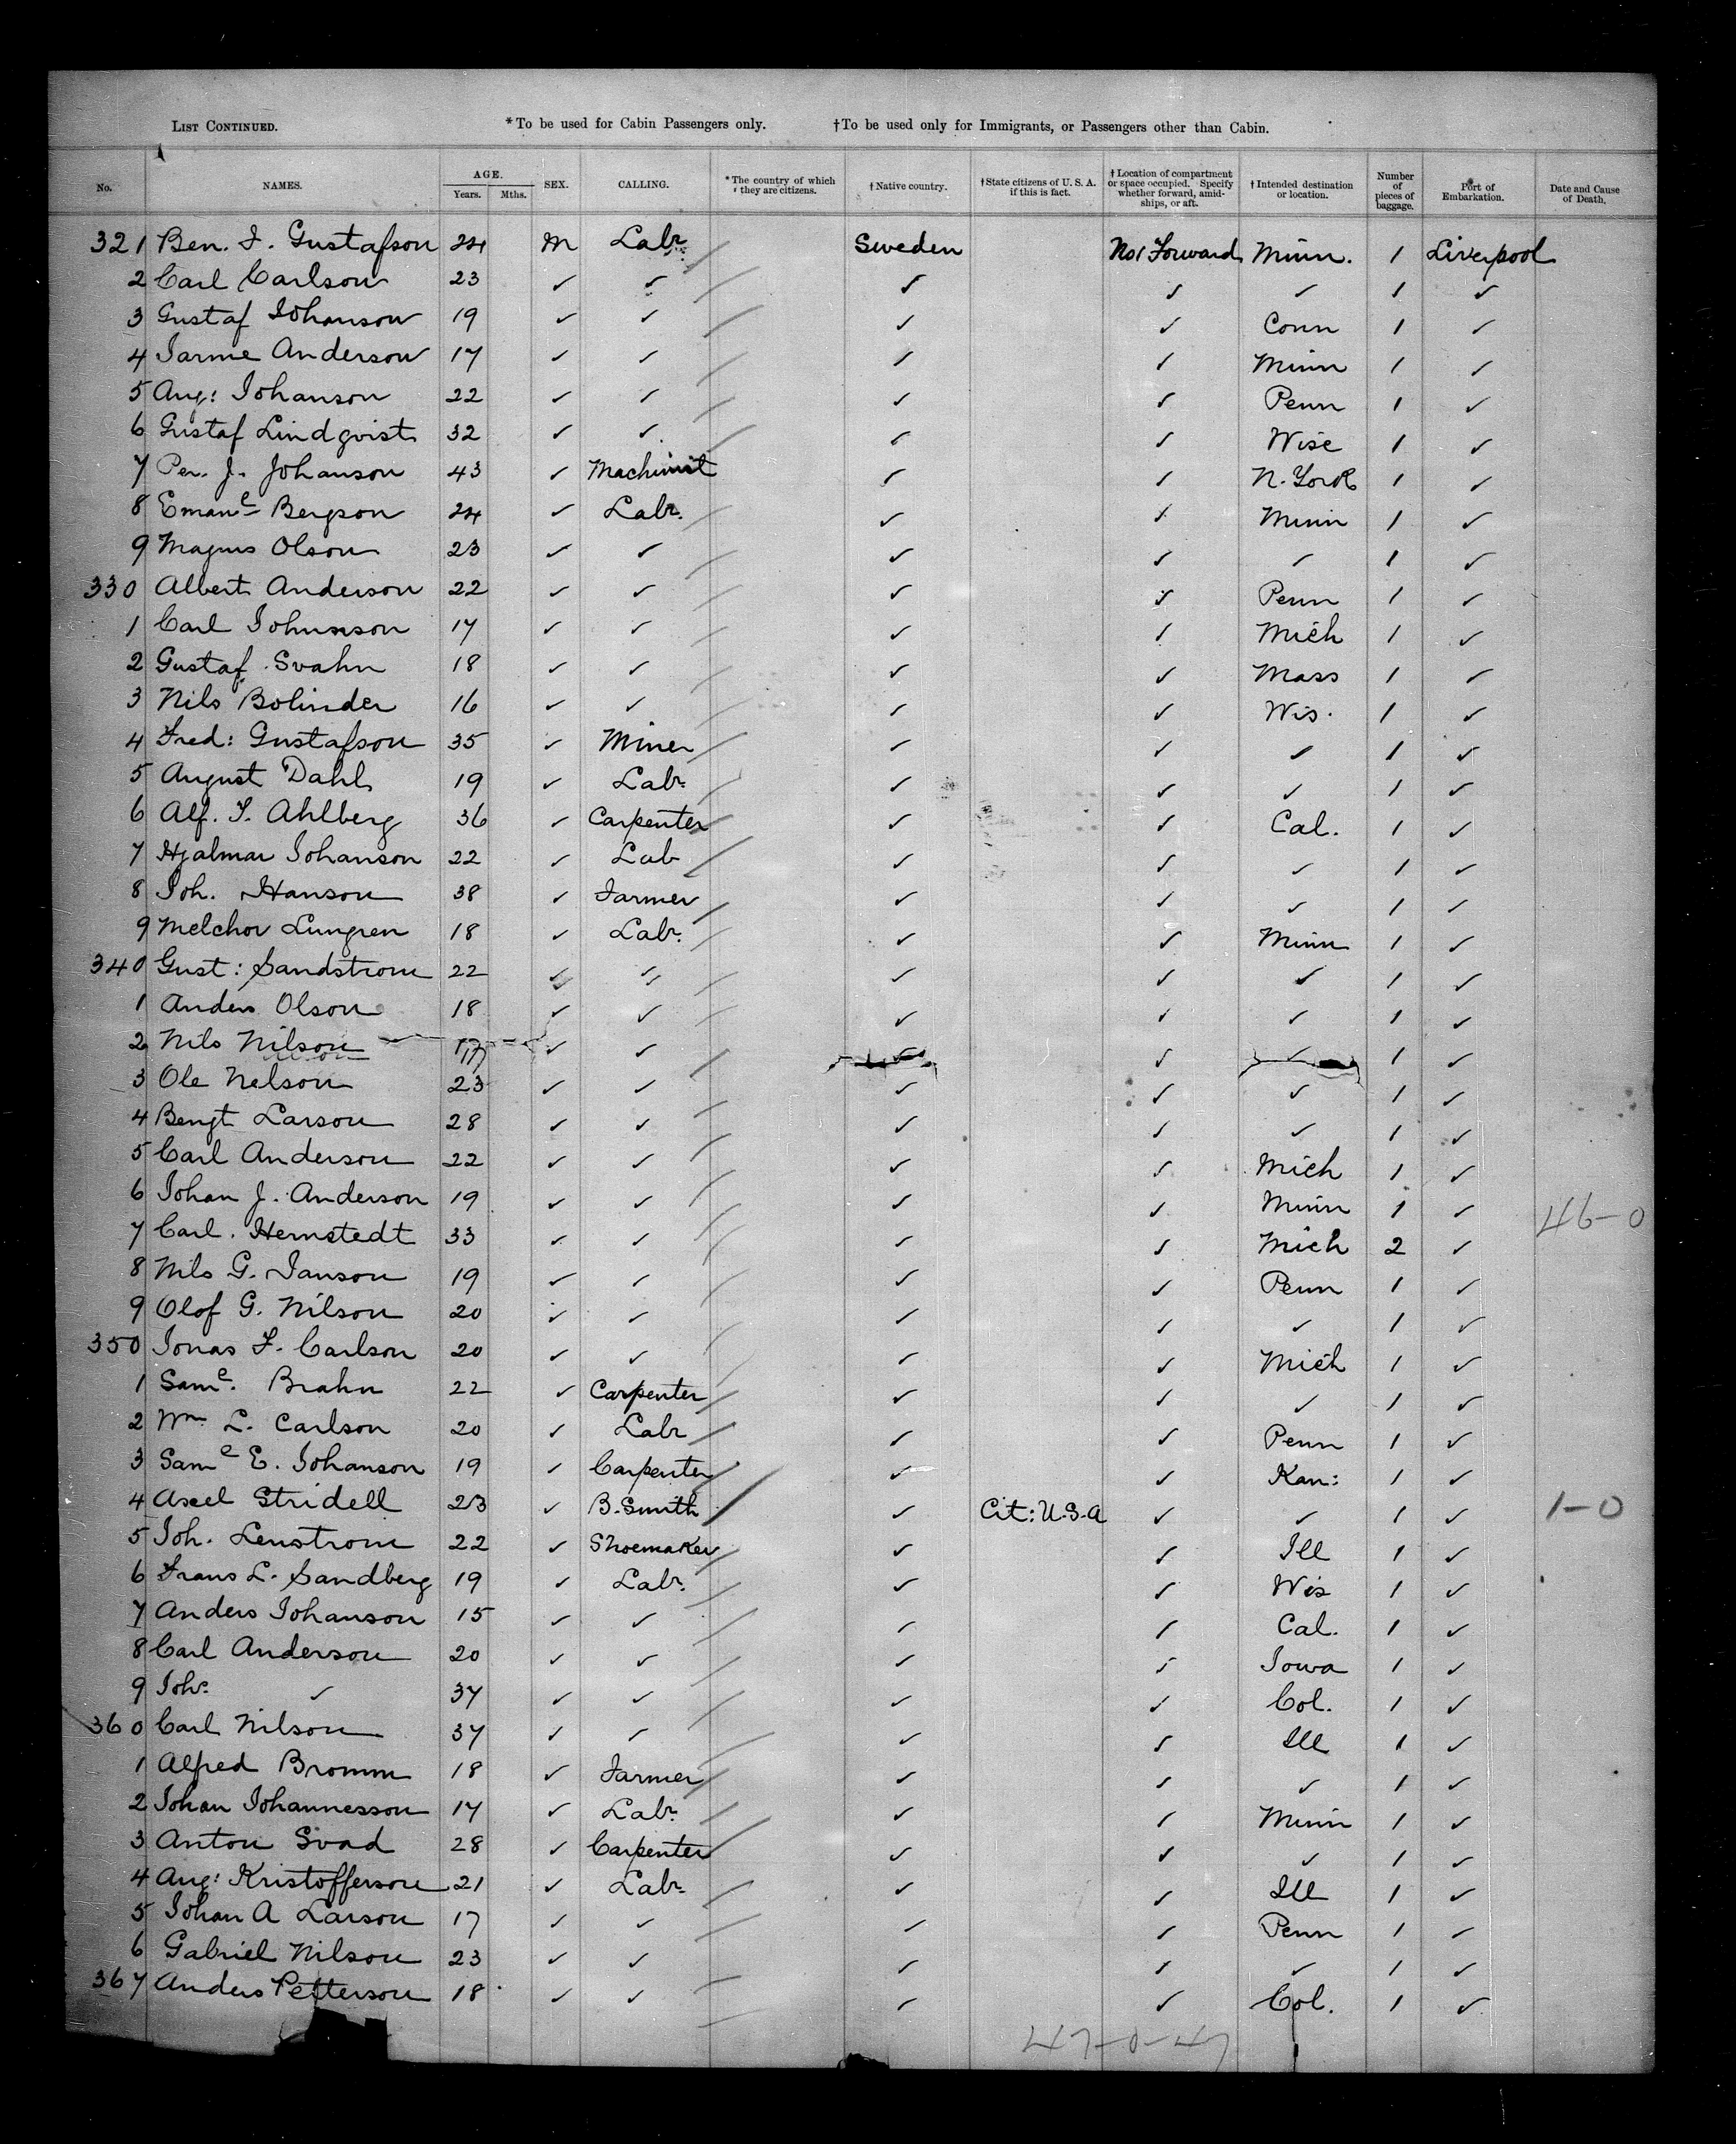 LIST CONTINUED. *To be used for Cabin Passengers only. †To be used only for Immigrants, or Passengers other than Cabin.
No. NAMES. AGE. Years. Mths. SEX. CALLING. *The country of which they are citizens. †Native country. †State citizens of U. S. A. if this is fact. †Location of compartment or space occupied. Specify whether forward, amidships, or aft. †Intended destination or location. Number of pieces of baggage. Port of Embarkation. Date and Cause of Death.
321 Ben. F. Gustafson 24 M Labr Sweden No 1 Forward Minn. 1 Liverpool
2 Carl Carlson 23 ✓ ✓ ✓ ✓ ✓ 1 ✓
3 Gustaf Johanson 19 ✓ ✓ ✓ ✓ Conn 1 ✓
4 Jarme Anderson 17 ✓ ✓ ✓ ✓ Minn 1 ✓
5 Aug: Johanson 22 ✓ ✓ ✓ ✓ Penn 1 ✓
6 Gustaf Lindqvist 32 ✓ ✓ ✓ ✓ Wisc 1 ✓
7 Per. J. Johanson 43 ✓ Machinist ✓ ✓ N. York 1 ✓
8 Emanl Bergson 24 ✓ Labr. ✓ ✓ Minn 1 ✓
9 Magnus Olson 23 ✓ ✓ ✓ ✓ ✓ 1 ✓
330 Albert Anderson 22 ✓ ✓ ✓ ✓ Penn 1 ✓
1 Carl 17 ✓ ✓ ✓ ✓ Mich 1 ✓
2 Gustaf Svahn 18 ✓ ✓ ✓ ✓ Mass 1 ✓
3 Nils Bolinder 16 ✓ ✓ ✓ ✓ Wis. 1 ✓
4 Fred: Gustafson 35 ✓ Miner ✓ ✓ ✓ 1 ✓
5 August Dahl 19 ✓ Labr ✓ ✓ ✓ 1 ✓
6 Alf. F. Ahlberg 36 ✓ Carpenter ✓ ✓ Cal. 1 ✓
7 Hjalmar Johanson 22 ✓ Lab ✓ ✓ ✓ 1 ✓
8 Joh. Hanson 38 ✓ Farmer ✓ ✓ ✓ 1 ✓
9 Melchor Lungren 18 ✓ Labr. ✓ ✓ Minn 1 ✓
340 Gust: Sandstrom 22 ✓ ✓ ✓ ✓ ✓ 1 ✓
1 Anders Olson 18 ✓ ✓ ✓ ✓ ✓ 1 ✓
2 Nils Nilson 17 ✓ ✓ ✓ ✓ ✓ 1 ✓
3 Ole Nelson 23 ✓ ✓ ✓ ✓ ✓ 1 ✓
4 Bengt Larson 28 ✓ ✓ ✓ ✓ ✓ 1 ✓
5 Carl Anderson 22 ✓ ✓ ✓ ✓ Mich 1 ✓
6 Johan J. Anderson 19 ✓ ✓ ✓ ✓ Minn 1 ✓ 46-0
7 Carl. Hernstedt 33 ✓ ✓ ✓ ✓ Mich 2 ✓
8 Nils G. Janson 19 ✓ ✓ ✓ ✓ Penn 1 ✓
9 Olof G. Nilson 20 ✓ ✓ ✓ ✓ ✓ 1 ✓
350 Jonas F. Carlson 20 ✓ ✓ ✓ ✓ Mich 1 ✓
1 Saml. Brahn 22 ✓ Carpenter ✓ ✓ ✓ 1 ✓
2 Wm. L. Carlson 20 ✓ Labr ✓ ✓ Penn 1 ✓
3 Saml E. Johanson 19 ✓ Carpenter ✓ ✓ Kan: 1 ✓
4 Axel Stridell 23 ✓ B. Smith ✓ Cit: U.S.A ✓ ✓ 1 ✓ 1-0
5 Joh. Lenstrom 22 ✓ Shoemaker ✓ ✓ Ill 1 ✓
6 Frans L. Sandberg 19 ✓ Labr. ✓ ✓ Wis 1 ✓
7 Anders Johanson 15 ✓ ✓ ✓ ✓ Cal. 1 ✓
8 Carl Anderson 20 ✓ ✓ ✓ ✓ Iowa 1 ✓
9 Johs. ✓ 37 ✓ ✓ ✓ ✓ Col. 1 ✓
360 Carl Nilson 37 ✓ ✓ ✓ ✓ Ill 1 ✓
1 Alfred Bromm 18 ✓ Farmer ✓ ✓ ✓ 1 ✓
2 Johan Johannesson 17 ✓ Labr. ✓ ✓ Minn 1 ✓
3 Anton Svad 28 ✓ Carpenter ✓ ✓ ✓ 1 ✓
4 Aug: Kristofferson 21 ✓ Labr. ✓ ✓ Ill 1 ✓
5 Johan A Larson 17 ✓ ✓ ✓ ✓ Penn 1 ✓
6 Gabriel Nilson 23 ✓ ✓ ✓ ✓ ✓ 1 ✓
367 Anders Petterson 18 ✓ ✓ ✓ ✓ Col. 1 ✓
47-0-47